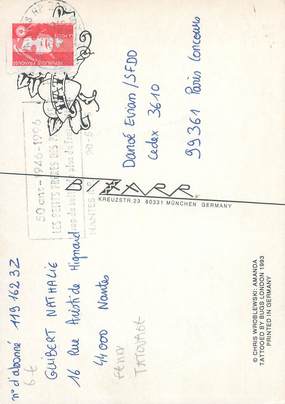 RÉPUBLIQUE FRANÇAISE
50 ans - 1946-1996
NANTES
Danoé Evian/SFDD
Cedex 3610
99361 Paris Concours
BIZARR
KREUZSTR. 23 80331 MÜNCHEN GERMANY
n° d'abonné 119 162 3Z
GUIBERT NATHALIE
16 Rue Aristide Hignard
44000 Nantes
TATOUAGE
© CHRIS WROBLEWSKI: AMANDA
TATTOOED BY BUGS LONDON 1993
PRINTED IN GERMANY